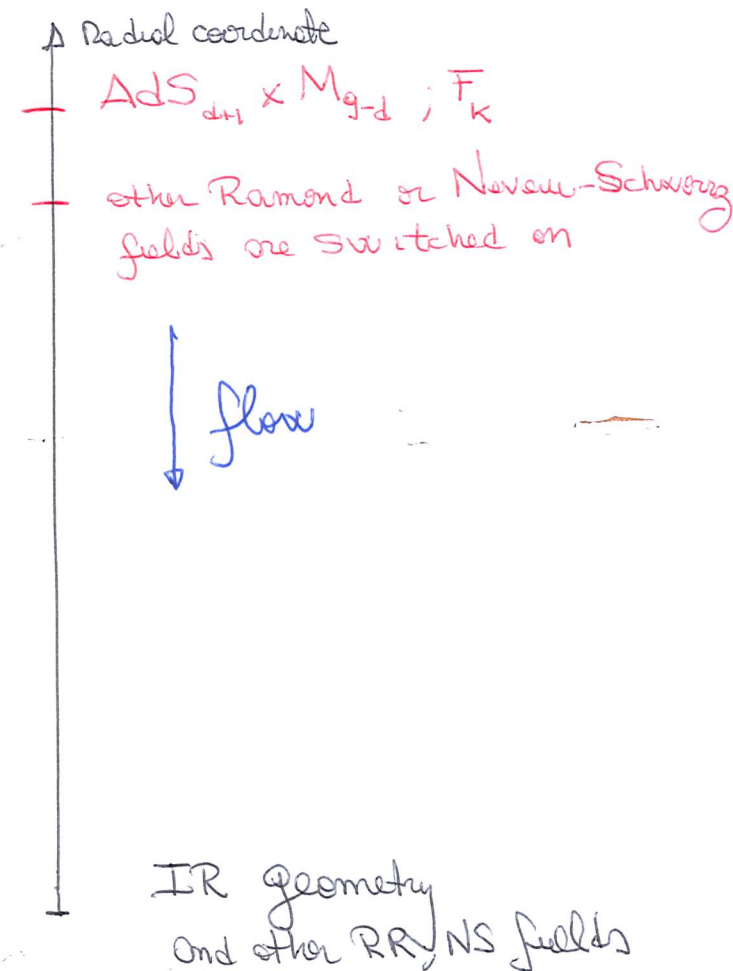 Radial coordinate
AdS_{d+1} x M_{9-d} ; F_K
other Ramond or Neveu-Schwarz
fields are switched on
flow
IR geometry
and other RR, NS fields